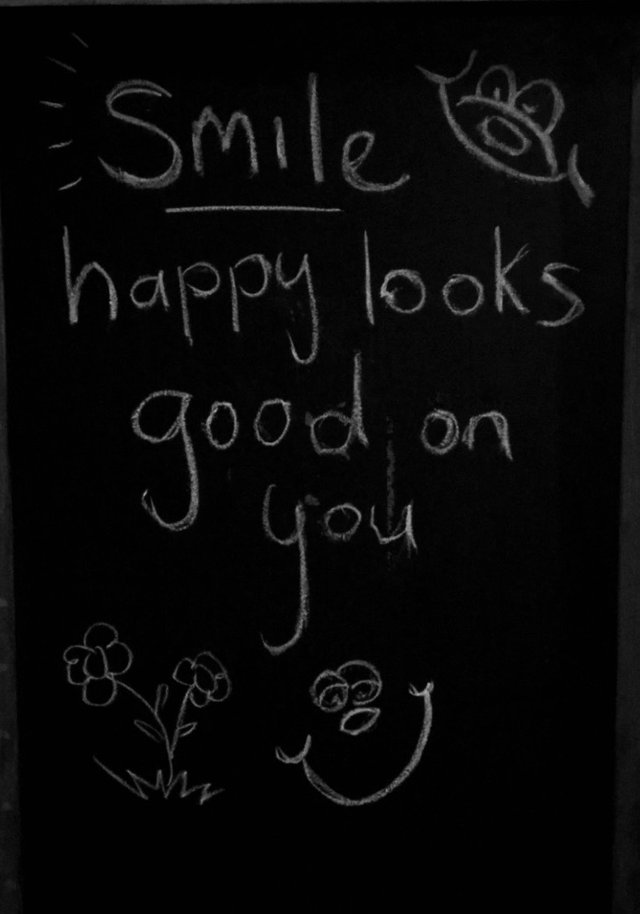 Smile
happy looks
good on
you